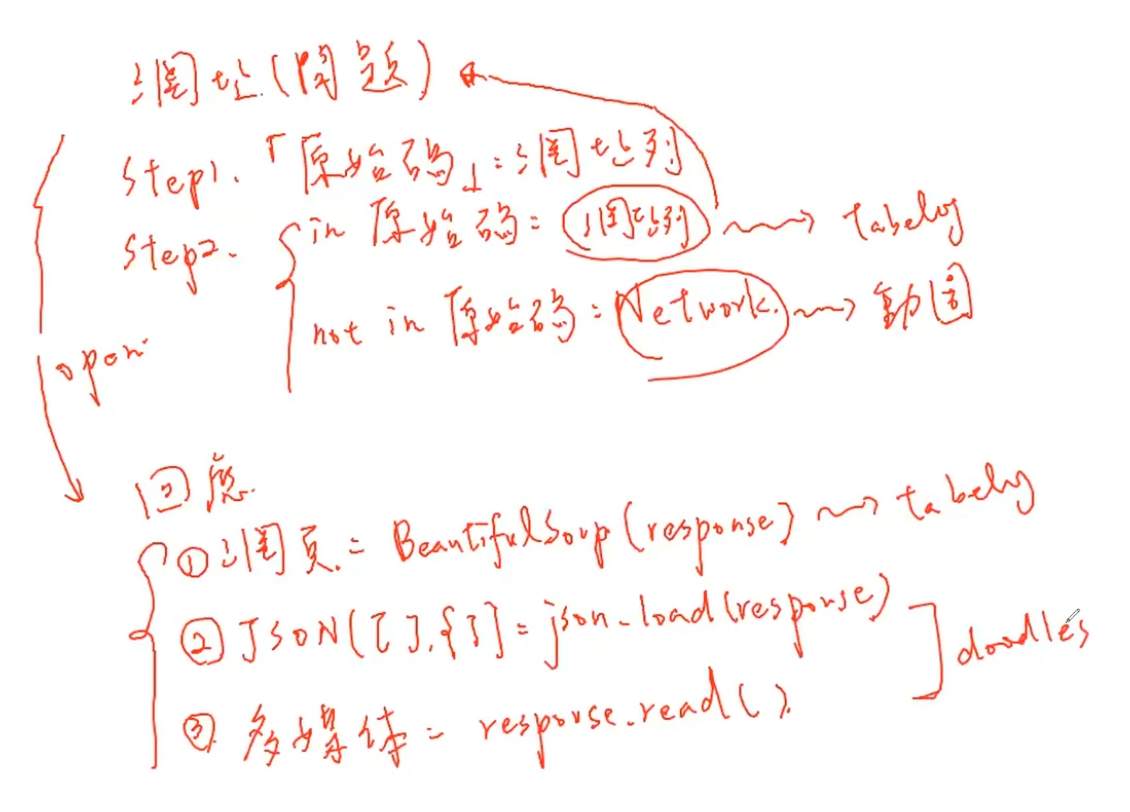 網址(問題)
Step1.「原始碼」:網址列
Step2.
in 原始碼: 網址列 → tabelog
not in 原始碼: Network. → 動圖
open
回應.
① 網頁 = BeautifulSoup(response) → tabelog
② JSON([],{}) = json.load(response)
③ 多媒体 = response.read().
doodles